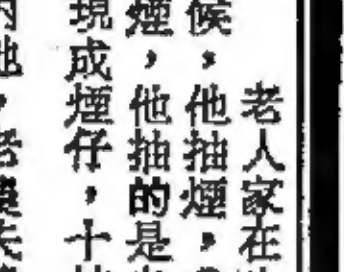 老人家在
候，他抽煙，
煙，他抽的是
現成煙仔，十
地，老